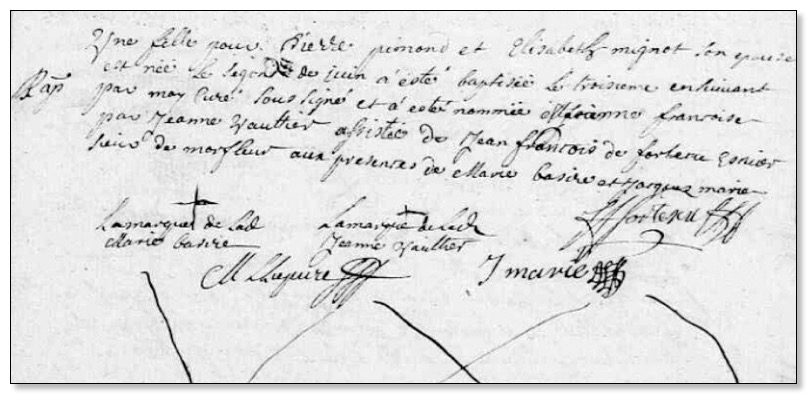 Une fille pour Pierre pimond et Elisabeth mignot son epouse
est née le segond de juin a esté baptisée le troisieme ensuivant
Bap
par moy Curé soussigné et a esté nommée francoise
par Jeanne Vaultier assistée de Jean francois de
sieur de morfleur aux presences de Marie basire et Jacques marie
La marque de lad La marque de lad
Marie basire Jeanne Vaultier
J marie